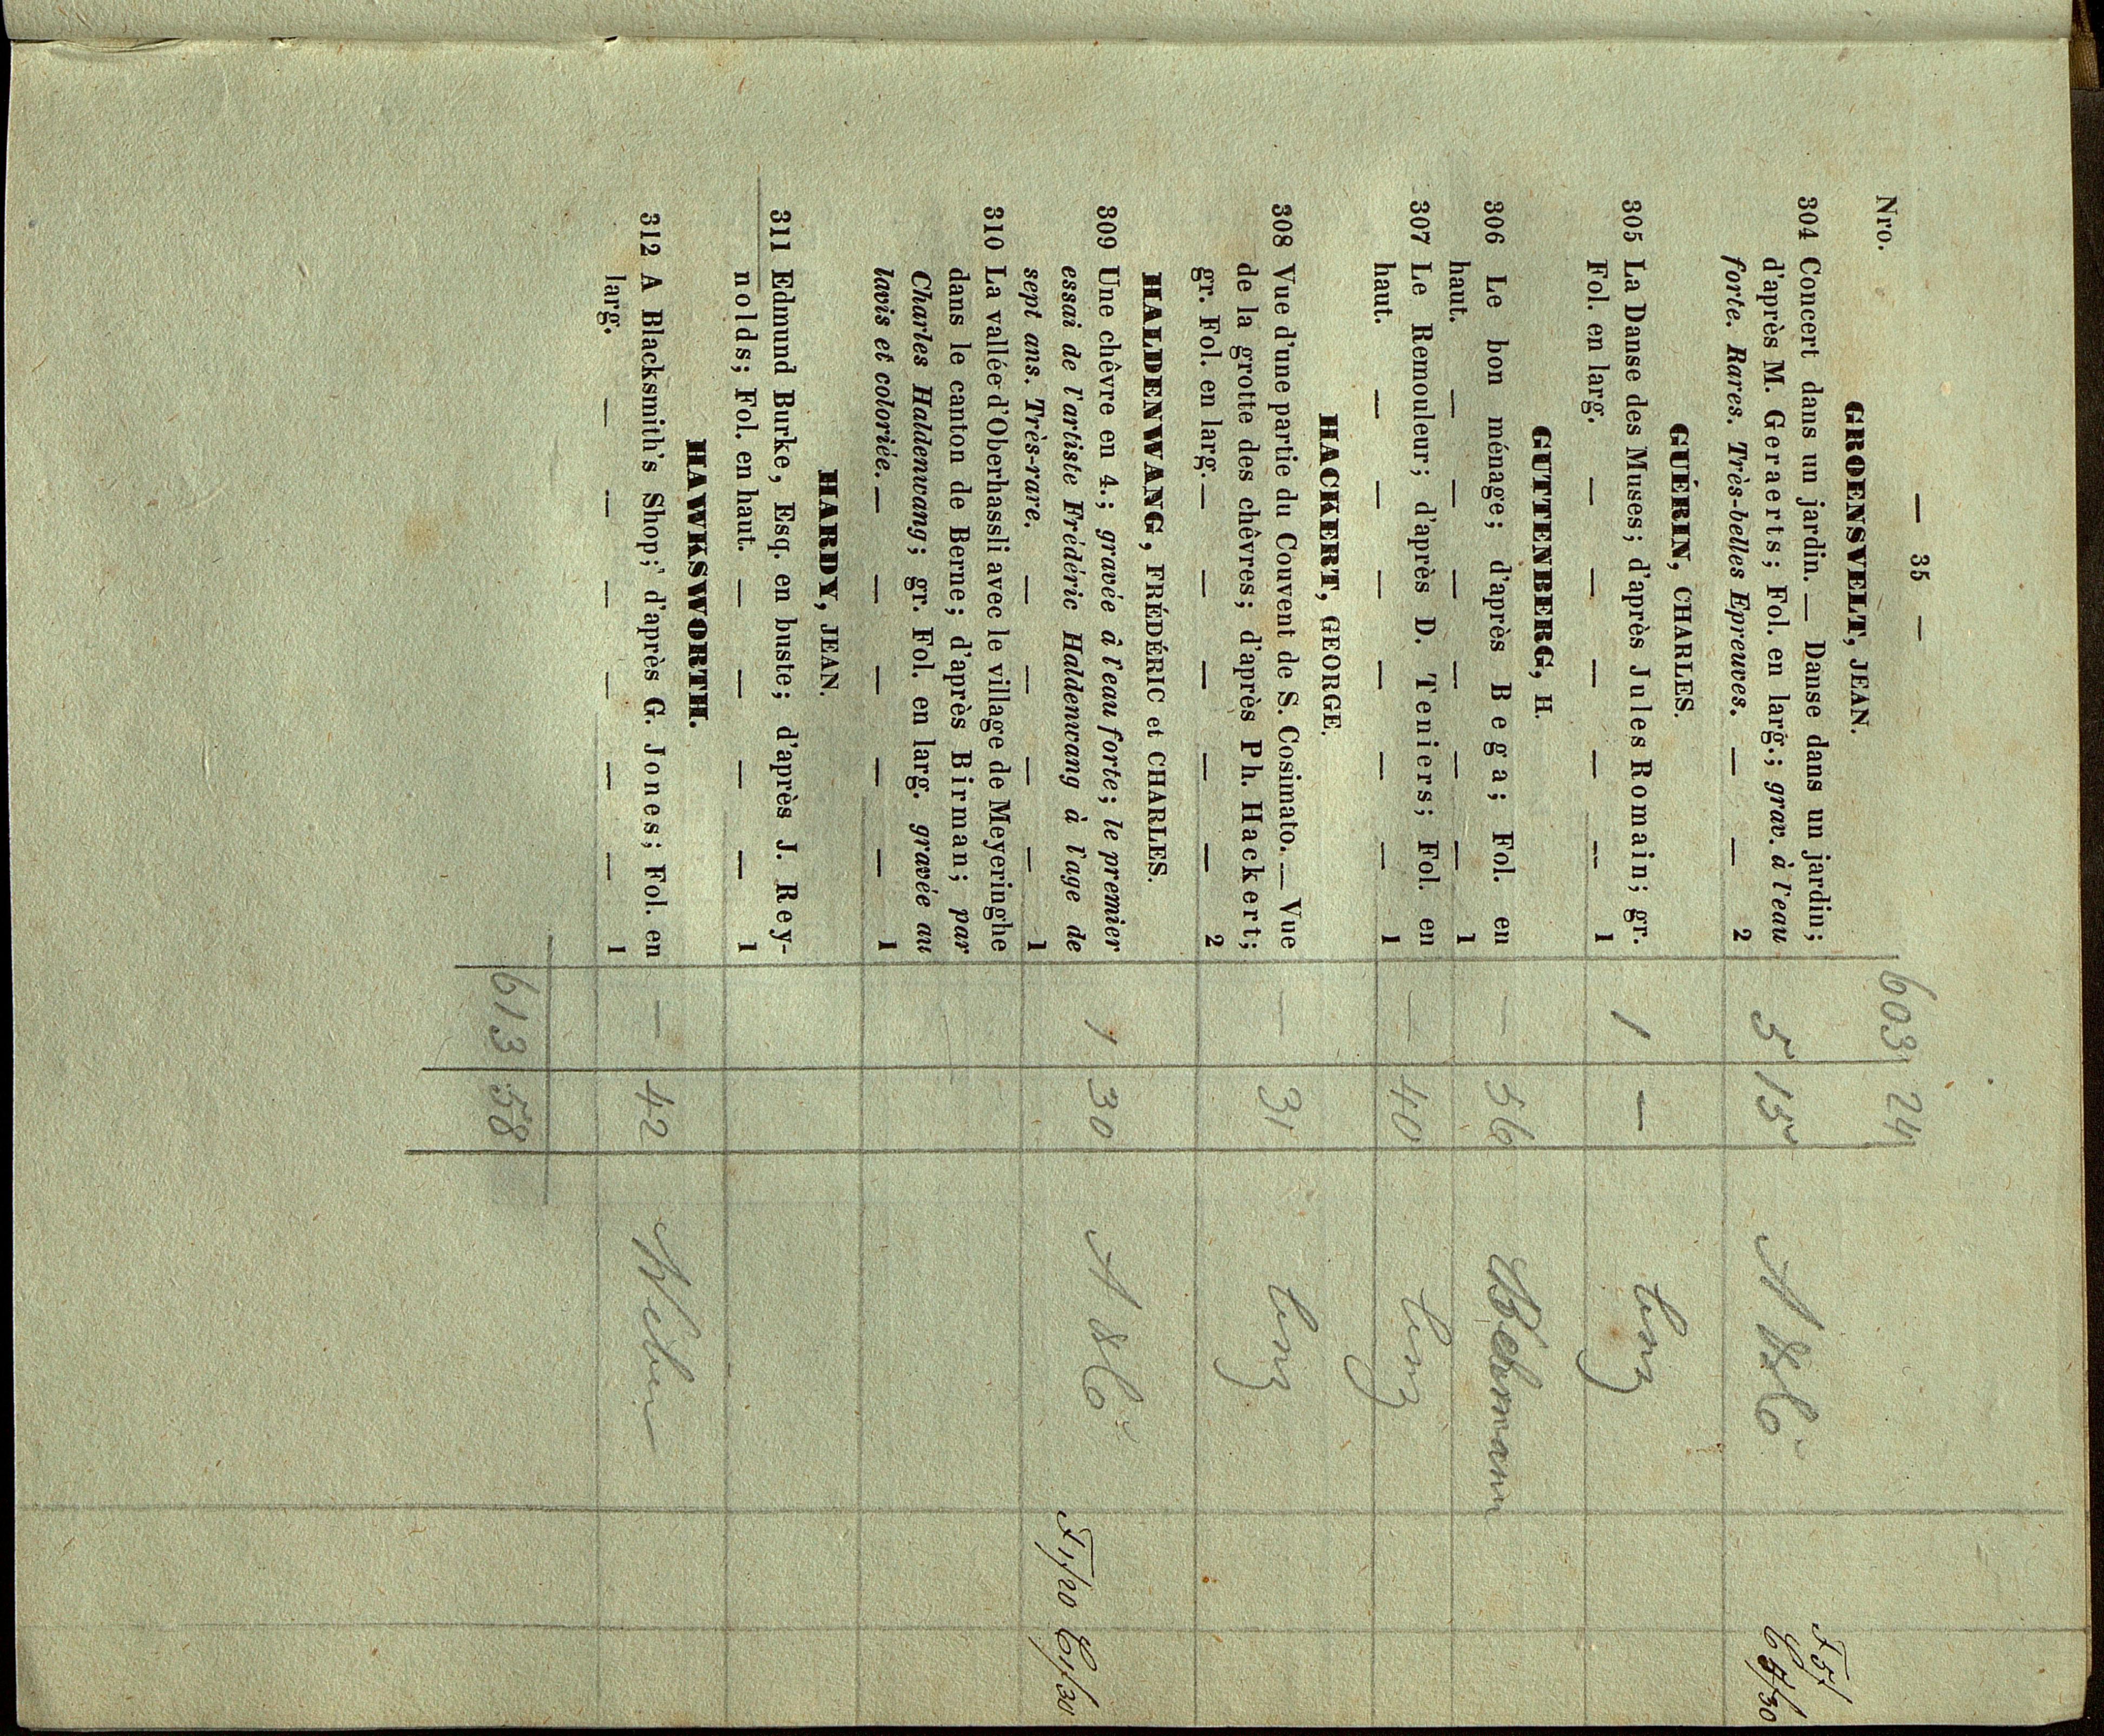 — 35 —
Nro.
603 24
GROENSVELT, JEAN.
304 Concert dans un jardin. — Danse dans un jardin;
d'après M. Geraerts; Fol. en larg.; grav. à l'eau
forte. Rares. Très-belles Epreuves. — — 2
5 15
F 5/
C 5/30
GUÉRIN, CHARLES.
305 La Danse des Muses; d'après Jules Romain; gr.
Fol. en larg. — — — — — 1
1 —
GUTTENBERG, H.
306 Le bon ménage; d'après Bega; Fol. en
haut. — — — — — — 1
— 56
307 Le Remouleur; d'après D. Teniers; Fol. en
haut. — — — — — — 1
— 40
HACKERT, GEORGE.
308 Vue d'une partie du Couvent de S. Cosimato. — Vue
de la grotte des chêvres; d'après Ph. Hackert;
gr. Fol. en larg. — — — — — 2
— 31
HALDENWANG, FRÉDÉRIC et CHARLES.
309 Une chêvre en 4.; gravée à l'eau forte; le premier
essai de l'artiste Frédéric Haldenwang à l'age de
sept ans. Très-rare. — — — — 1
1 30
F 1/20 C 1/30
310 La vallée d'Oberhassli avec le village de Meyeringhe
dans le canton de Berne; d'après Birman; par
Charles Haldenwang; gr. Fol. en larg. gravée au
lavis et coloriée. — — — — — 1
HARDY, JEAN.
311 Edmund Burke, Esq. en buste; d'après J. Rey-
nolds; Fol. en haut. — — — — 1
HAWKSWORTH.
312 A Blacksmith's Shop; d'après G. Jones; Fol. en
larg. — — — — — — 1
— 42 Weber
613 58